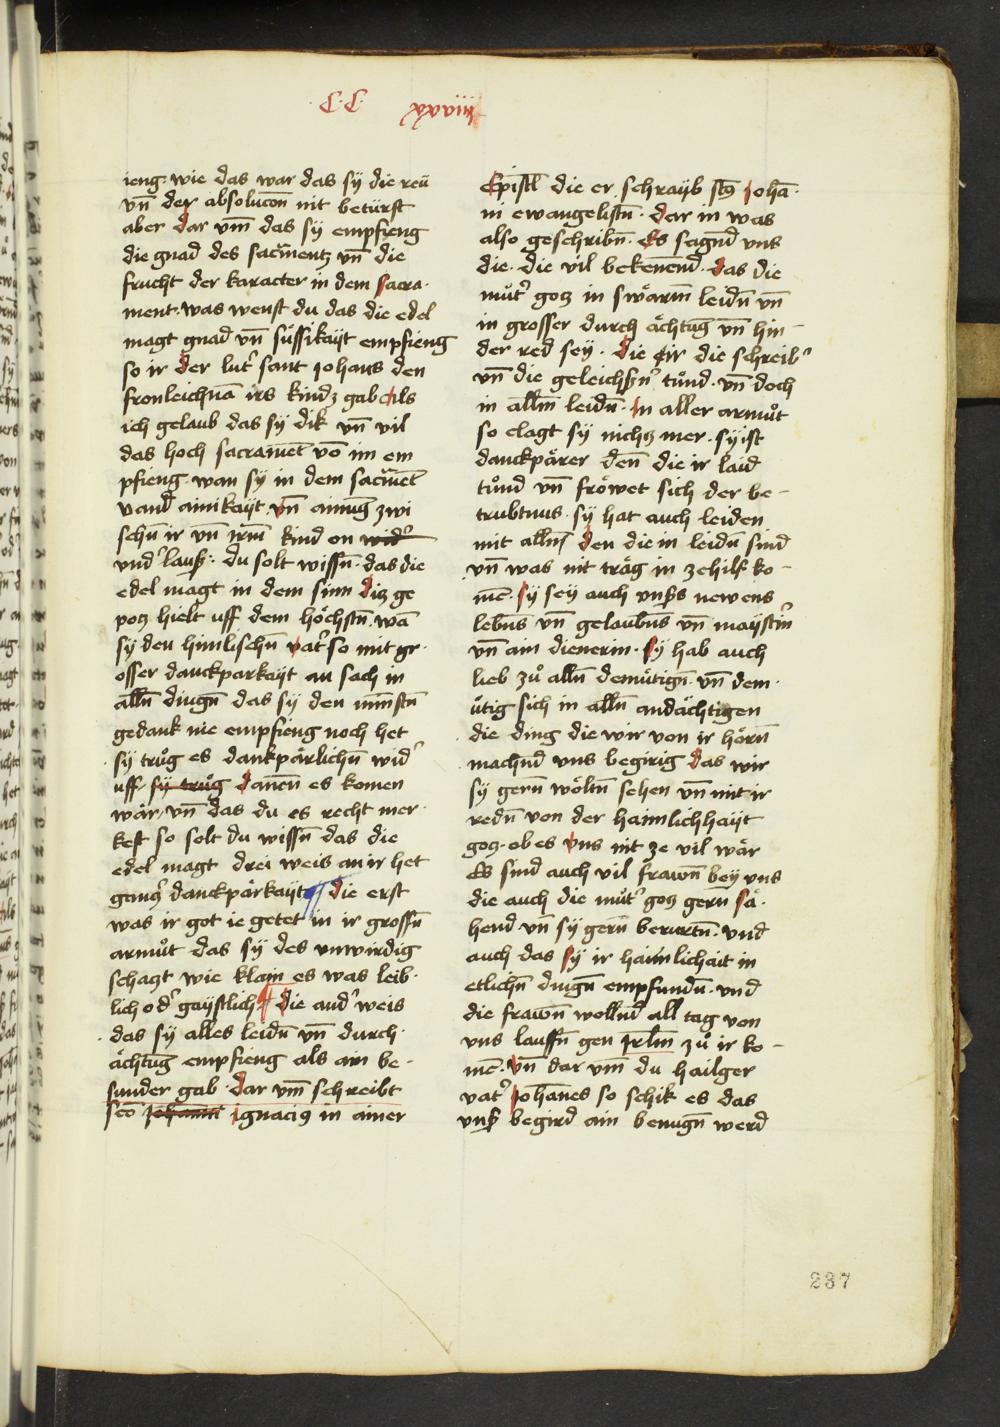 C·C· xxxviiij
ieng· wie das war das sÿ die reü
vn̄ der absolucōn nit betürst
aber dar vm̄ das sÿ empfieng
die gnad des sacm̄entz vn̄ die
frucht der karacter in dem sacra·
ment· was wenst du das die edel
magt gnad vn̄ süssikaÿt empfieng
so ir der lutͬ sant Johans den
fronleichnā irs kindz gab Als
ich gelaub das sÿ dik vn̄ vil
das hoch sacramēt vō im em
pfieng· wan sÿ in dem sacm̄ēt
vand ainikaÿt vn̄ ainūg zwi
schn̄ ir vn̄ irm̄ kind on widͬ
vndͬlauß· du solt wissn̄· das die
edel magt in dem sinn diz ge
potz hielt uff dem höchstn̄· wā
sÿ den himlischn̄ vatͬ so mit gr·
osser danckparkaÿt an sach in
alln̄ dingn̄ das sÿ den minstn̄
gedank nie empfieng noch het
sÿ trůg es dankpärlichn̄ widͬ
uff sÿ trůg dannn̄ es komen
wär· vn̄ das du es recht mer·
kest so solt du wissn̄ das die
edel magt drei weis an ir het
gantzͬ danckpärkaÿt ¶ die erst
was ir got ie getet in ir grossn̄
armůt das sÿ des unwirdig
schatzt wie klain es was leib·
lich odͬ gaÿstlich ¶ die andͬ weis
das sÿ alles leidn̄ vn̄ durch·
ächtūg empfieng als ain be-
sunder gab· dar vm̄ schreibt
scō Johānn Ignaciꝰ in ainer
Epistl̄ die er schraÿb scō Johā·
in ewangelistn̄· dar in was
also geschribn̄· Es sagnd vns
die· die vil bekenēnd· das die
můtͬ gotz in swärm̄ leidn̄ vn̄
in grosser durch ächtūg vn̄ hin-
der red seÿ· die eir die schreibͬ
vn̄ die geleichsnͬ tůnd· vn̄ doch
in allm̄ leidn̄· In aller armůt
so clagt sÿ nichtz mer· sÿ ist
danckpärer den̄ die ir laid
tůnd vn̄ fröwet sich der be-
trubtnus· sÿ hat auch leiden
mit alln̄ den die in leidn̄ sind
vn̄ was nit träg in ze hilf ko-
mē· sÿ seÿ auch vnsͬs newens
lebn̄s vn̄ gelaubn̄s vn̄ maÿstͬin
vn̄ ain dienerin· sÿ hab auch
lieb zů alln̄ demütign̄· vn̄ dem·
ütig sich in alln̄ andächtigen
die ding die wir von ir hörn̄
machnd vns begirig das wir
sÿ gern̄ wöltn̄ sehen vn̄ mit ir
redn̄ von der haimlichhaÿt
gotz· ob es vns nit ze vil wär
Es sind auch vil frawn̄ beÿ vns
die auch die můtͬ gotz gern̄ sä·
hend vn̄ sÿ gern̄ berurtn̄· vnd
auch das sÿ ir haimlichait in
etlichn̄ dingn̄ empfundn̄· vnd
die frawn̄ wollnd all tag von
vns lauffn̄ gen Jrlm̄ zů ir ko-
mē· vn̄ dar vm̄ du hailger
vatͬ Johānes so schik es das
vnsͬ begird ain benugn̄ werd
237